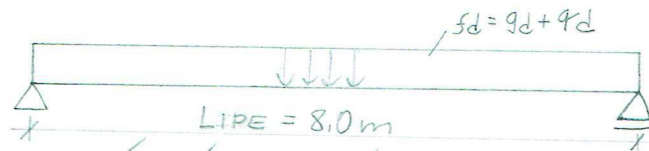 fd = gd + qd
LIPE = 8.0m